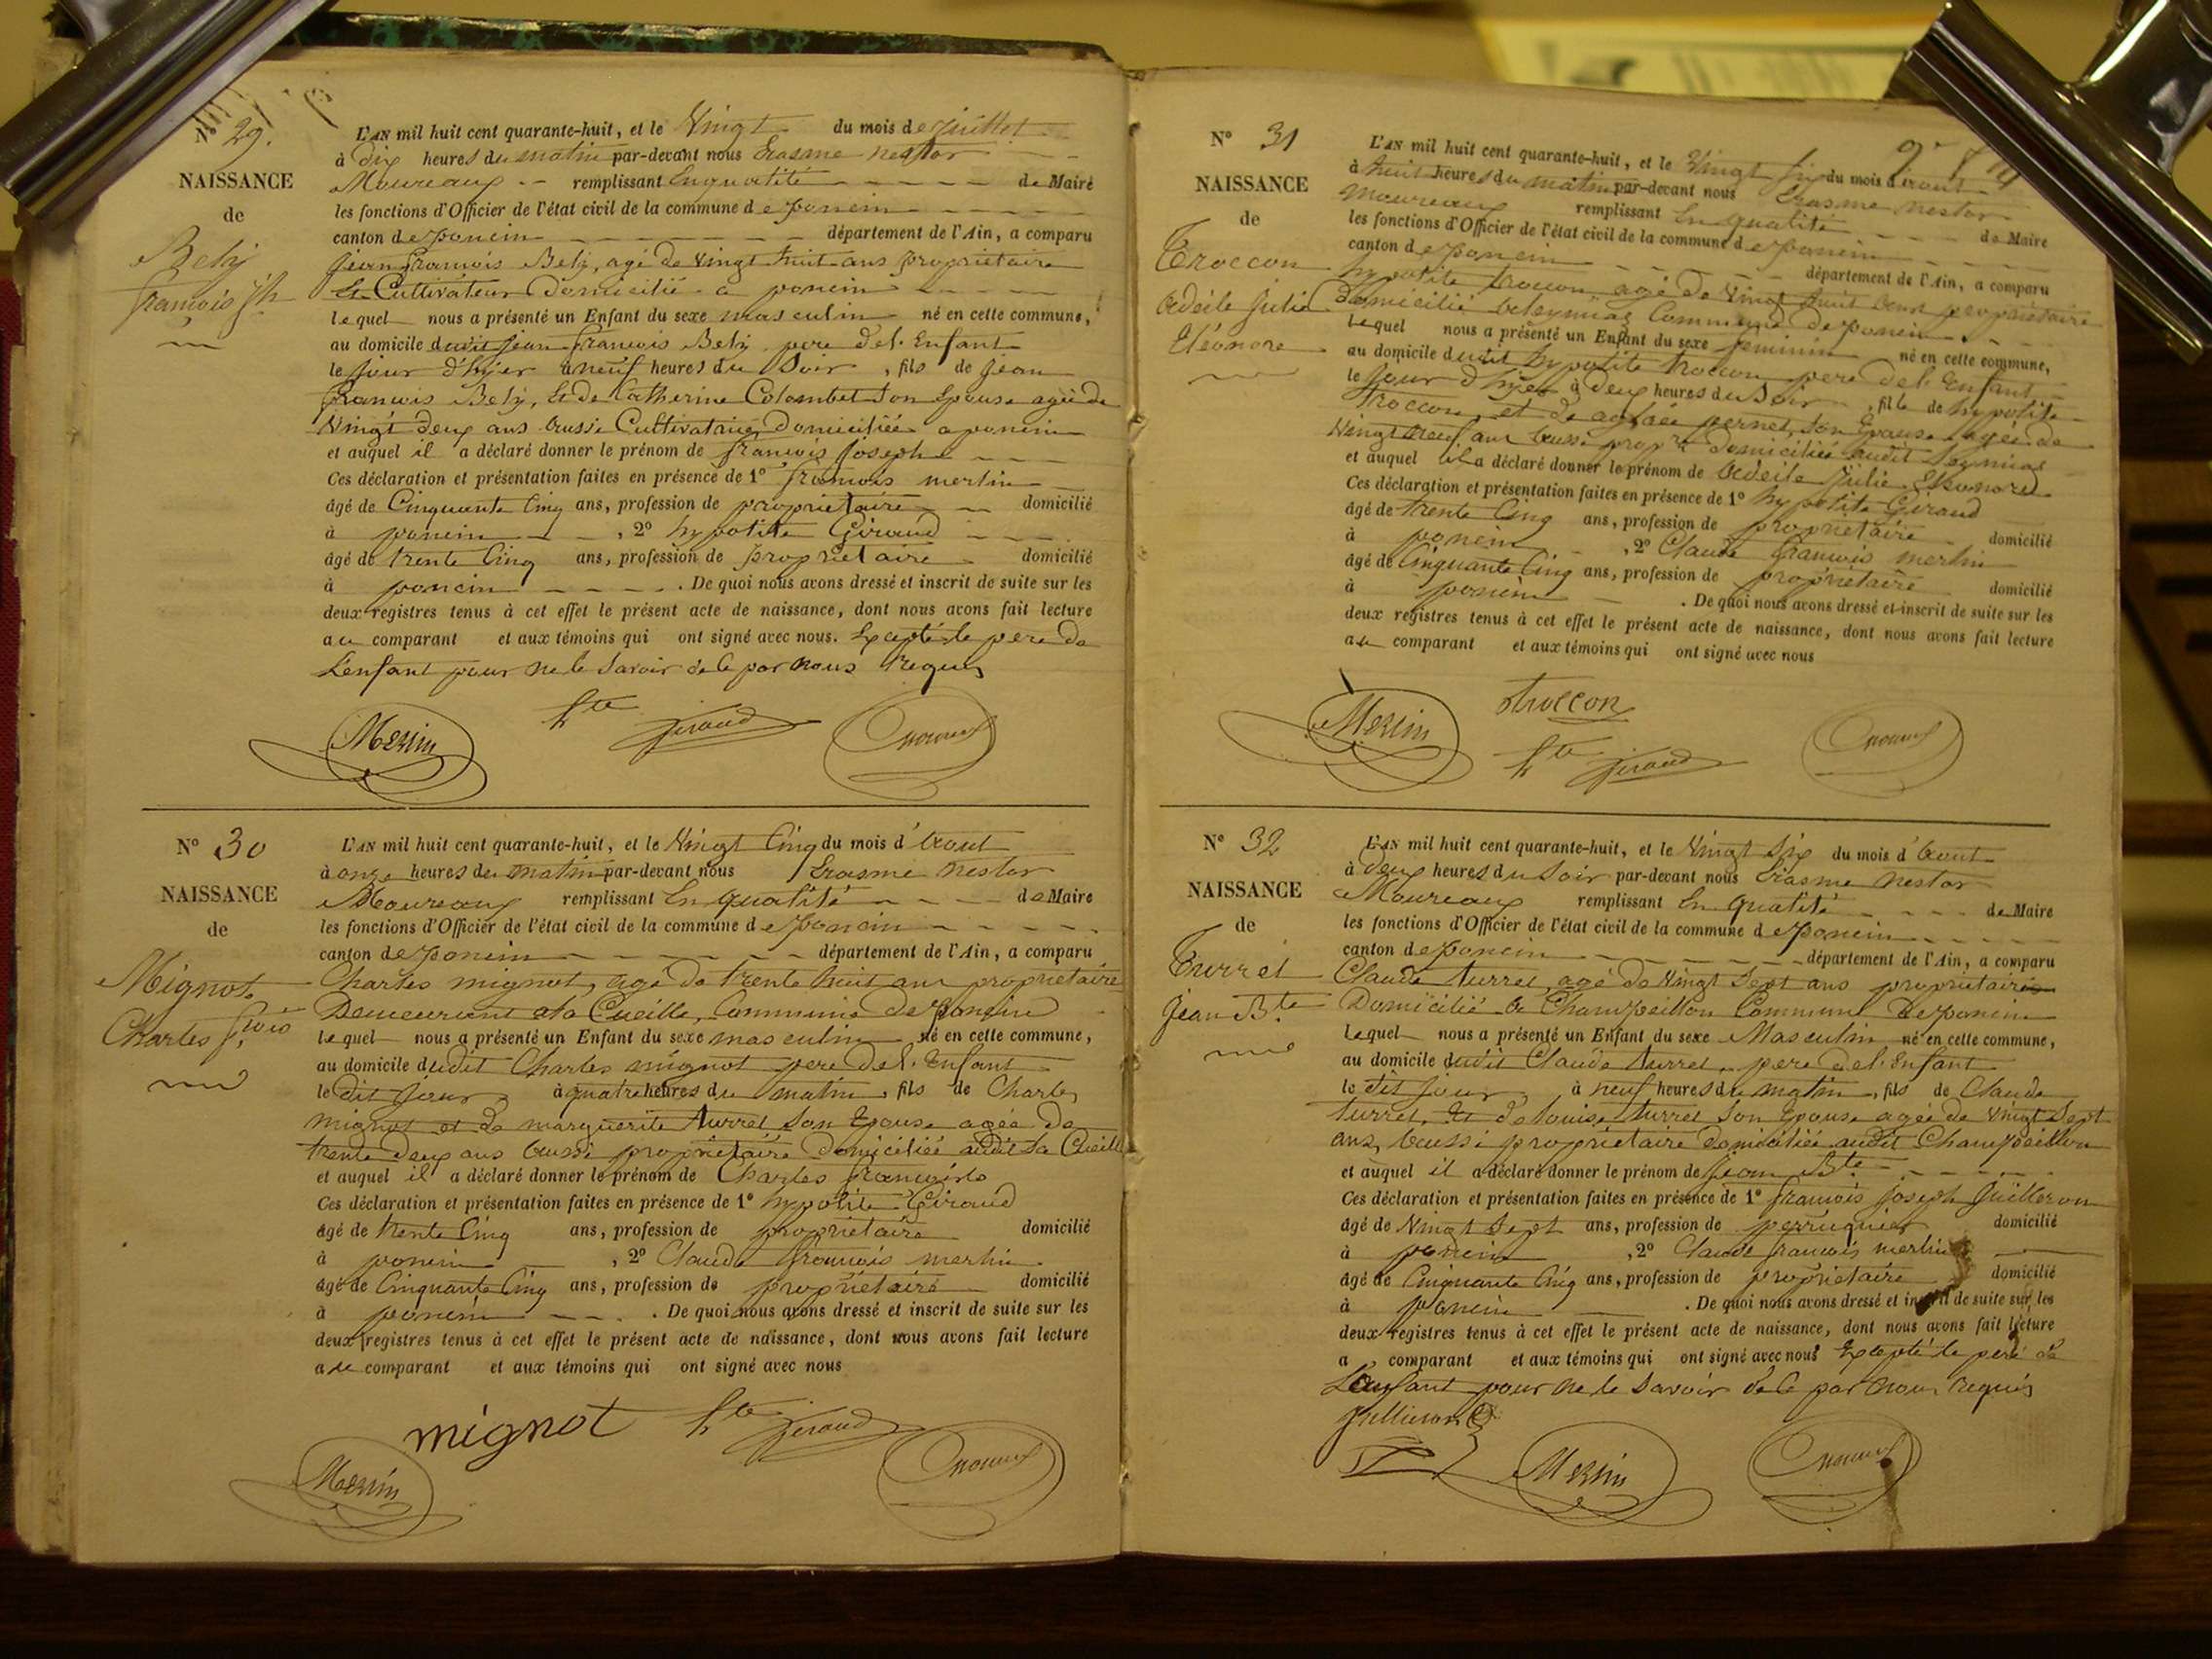 N° 29.
NAISSANCE
de
Bely
françois Jh
L'AN mil huit cent quarante-huit, et le Vingt du mois de juillet
à dix heures du matin par-devant nous Erasme nestor
Moureaux remplissant En qualité de Maire
les fonctions d'Officier de l'état civil de la commune de poncin
canton de poncin département de l'Ain, a comparu
jean françois Bely, agé de Vingt huit ans propriétaire
Et Cultivateur domicilié a poncin
lequel nous a présenté un Enfant du sexe masculin né en cette commune,
au domicile dudit jean françois Bely pere del. Enfant
le jour d'hyer à neuf heures du Soir, fils de jean
françois Bely, Et de Catherine Colombet Son Epouse agée de
Vingt deux ans aussi Cultivatrice, domiciliée a poncin
et auquel il a déclaré donner le prénom de françois joseph
Ces déclaration et présentation faites en présence de 1° françois merlin
âgé de Cinquante Cinq ans, profession de propriétaire domicilié
à poncin, 2° hypolite Giraud
âgé de trente Cinq ans, profession de propriétaire domicilié
à poncin. De quoi nous avons dressé et inscrit de suite sur les
deux registres tenus à cet effet le présent acte de naissance, dont nous avons fait lecture
au comparant et aux témoins qui ont signé avec nous. Excepté le pere de
L'enfant pour ne le Savoir de ce par nous requis
Merlin hte Giraud Moureaux
N° 30
NAISSANCE
de
Mignot
Charles fçois
L'AN mil huit cent quarante-huit, et le Vingt Cinq du mois d'aout
à onze heures du matin par-devant nous Erasme nestor
Moureaux remplissant En qualité de Maire
les fonctions d'Officier de l'état civil de la commune de poncin
canton de poncin département de l'Ain, a comparu
Charles mignot, agé de trente huit ans propriétaire
Demeurant a la Cueille, Commune de poncin
lequel nous a présenté un Enfant du sexe masculin né en cette commune,
au domicile dudit Charles mignot pere del. Enfant
le dit jour à quatre heures du matin, fils de Charles
mignot et de marguerite turrel Son Epouse agée de
trente deux ans aussi propriétaire domiciliée audit La Cueille
et auquel il a déclaré donner le prénom de Charles françois
Ces déclaration et présentation faites en présence de 1° hypolite Giraud
âgé de trente Cinq ans, profession de propriétaire domicilié
à poncin, 2° Claude françois merlin
âgé de Cinquante Cinq ans, profession de propriétaire domicilié
à poncin. De quoi nous avons dressé et inscrit de suite sur les
deux registres tenus à cet effet le présent acte de naissance, dont nous avons fait lecture
au comparant et aux témoins qui ont signé avec nous
mignot hte Giraud
Merlin Moureaux
N° 31
NAISSANCE
de
Troccon
Adèile Julie
Eléonore
L'AN mil huit cent quarante-huit, et le Vingt Six du mois d'aout
à huit heures du matin par-devant nous Erasme nestor
moureaux remplissant En qualité de Maire
les fonctions d'Officier de l'état civil de la commune de poncin
canton de poncin département de l'Ain, a comparu
hypolite troccon agé de Vingt huit ans propriétaire
domicilié a leymiaz Commune de poncin
lequel nous a présenté un Enfant du sexe feminin né en cette commune,
au domicile dudit hypolite troccon pere del. Enfant
le jour d'hyer à deux heures du Soir, fille de hypolite
troccon, et de pernet, Son Epouse agée de
Vingt neuf ans aussi propre domiciliée audit leymiaz
et auquel il a déclaré donner le prénom de Adèile Julie Eléonore
Ces déclaration et présentation faites en présence de 1° hypolite Giraud
âgé de trente Cinq ans, profession de propriétaire domicilié
à poncin, 2° Claude françois merlin
âgé de Cinquante Cinq ans, profession de propriétaire domicilié
à poncin. De quoi nous avons dressé et inscrit de suite sur les
deux registres tenus à cet effet le présent acte de naissance, dont nous avons fait lecture
au comparant et aux témoins qui ont signé avec nous
troccon
Merlin hte Giraud Moureaux
N° 32
NAISSANCE
de
Turrel
Jean Bte
L'AN mil huit cent quarante-huit, et le Vingt Six du mois d'aout
à deux heures du Soir par-devant nous Erasme nestor
Moureaux remplissant En qualité de Maire
les fonctions d'Officier de l'état civil de la commune de poncin
canton de poncin département de l'Ain, a comparu
Claude turrel, agé de Vingt Sept ans propriétaire
Domicilié a Champeillon Commune de poncin
lequel nous a présenté un Enfant du sexe Masculin né en cette commune,
au domicile dudit Claude turrel, pere del. Enfant
le dit jour à neuf heures du matin, fils de Claude
turrel, Et de louise turrel Son Epouse agée de Vingt Sept
ans, aussi propriétaire domiciliée audit Champeillon
et auquel il a déclaré donner le prénom de Jean Bte
Ces déclaration et présentation faites en présence de 1° françois joseph Juilleron
âgé de Vingt Sept ans, profession de perruquier domicilié
à poncin, 2° Claude françois merlin
âgé de Cinquante Cinq ans, profession de propriétaire domicilié
à poncin. De quoi nous avons dressé et inscrit de suite sur les
deux registres tenus à cet effet le présent acte de naissance, dont nous avons fait lecture
a comparant et aux témoins qui ont signé avec nous Excepté le pere de
L'enfant pour ne le Savoir de ce par nous requis
Juilleron
Merlin Moureaux